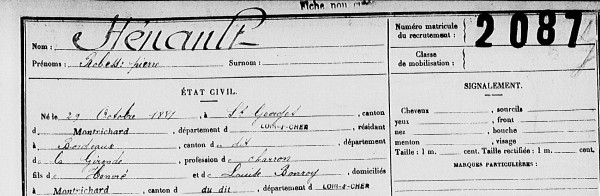 Fiche
Nom : Hénault
Prénoms : Robert pierre Surnom :
Numéro matricule du recrutement : 2087
Classe de mobilisation :
ÉTAT CIVIL.
Né le 29 Octobre 1881, à St Georges, canton
d Montrichard, département d LOIR-&-CHER, résidant
à Bordeaux, canton d dit, département
d la Gironde, profession d charron
fils d Honoré et d Louise Bonroy, domiciliés
à Montrichard, canton du dit, département d LOIR-&-CHER
SIGNALEMENT.
Cheveux, sourcils
yeux, front
nez, bouche
menton, visage
Taille : 1 m. cent. Taille rectifiée : 1 m. cent.
MARQUES PARTICULIÈRES :